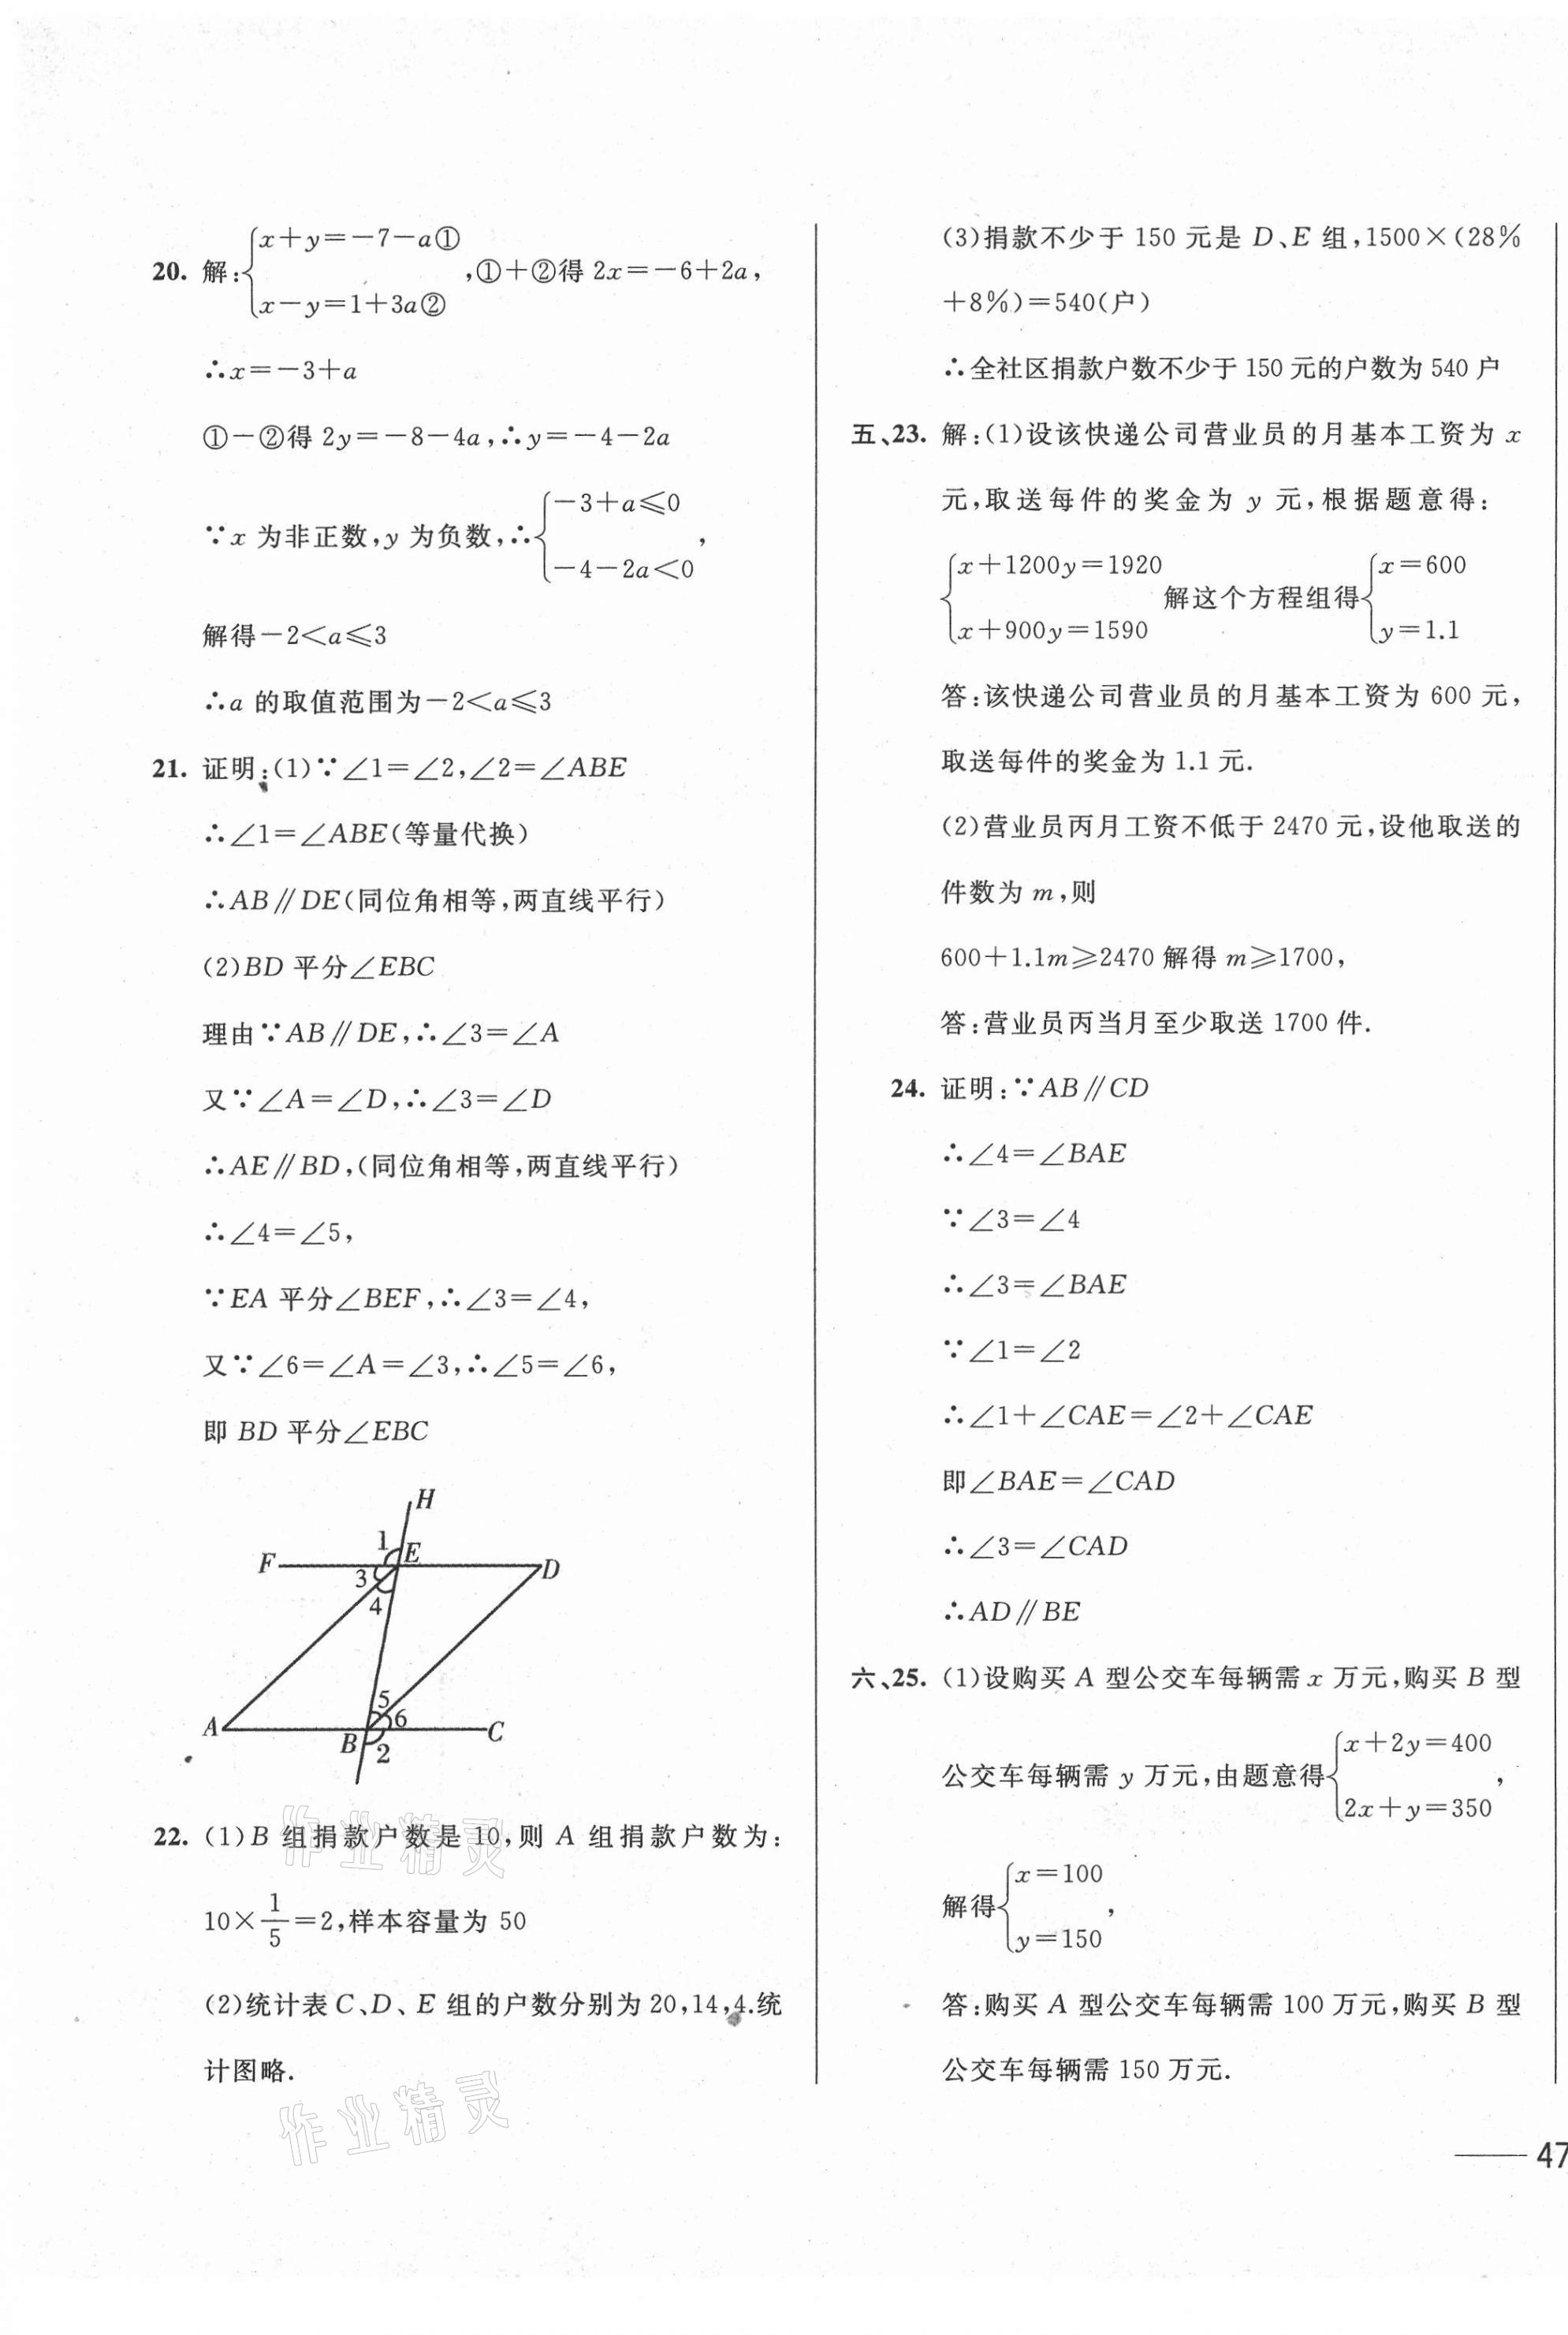 20. 解:{x+y=-7-a① x-y=1+3a②,①+②得 2x=-6+2a,
∴x=-3+a
①-②得 2y=-8-4a,∴y=-4-2a
∵x 为非正数,y 为负数,∴{-3+a≤0 -4-2a<0,
解得-2<a≤3
∴a 的取值范围为-2<a≤3
21. 证明:(1)∵∠1=∠2,∠2=∠ABE
∴∠1=∠ABE(等量代换)
∴AB∥DE(同位角相等,两直线平行)
(2)BD 平分∠EBC
理由∵AB∥DE,∴∠3=∠A
又∵∠A=∠D,∴∠3=∠D
∴AE∥BD,(同位角相等,两直线平行)
∴∠4=∠5,
∵EA 平分∠BEF,∴∠3=∠4,
又∵∠6=∠A=∠3,∴∠5=∠6,
即 BD 平分∠EBC
H
1
F
E
D
3
4
5
6
A
B
C
2
22. (1)B 组捐款户数是 10,则 A 组捐款户数为:
10×1/5=2,样本容量为 50
(2)统计表 C、D、E 组的户数分别为 20,14,4.统
计图略.
作业精灵
作业精灵
(3)捐款不少于 150 元是 D、E 组,1500×(28%
+8%)=540(户)
∴全社区捐款户数不少于 150 元的户数为 540 户
五、23. 解:(1)设该快递公司营业员的月基本工资为 x
元,取送每件的奖金为 y 元,根据题意得:
{x+1200y=1920 x+900y=1590 解这个方程组得{x=600 y=1.1
答:该快递公司营业员的月基本工资为 600 元,
取送每件的奖金为 1.1 元.
(2)营业员丙月工资不低于 2470 元,设他取送的
件数为 m,则
600+1.1m≥2470 解得 m≥1700,
答:营业员丙当月至少取送 1700 件.
24. 证明:∵AB∥CD
∴∠4=∠BAE
∵∠3=∠4
∴∠3=∠BAE
∵∠1=∠2
∴∠1+∠CAE=∠2+∠CAE
即∠BAE=∠CAD
∴∠3=∠CAD
∴AD∥BE
六、25. (1)设购买 A 型公交车每辆需 x 万元,购买 B 型
公交车每辆需 y 万元,由题意得{x+2y=400 2x+y=350,
解得{x=100 y=150,
答:购买 A 型公交车每辆需 100 万元,购买 B 型
公交车每辆需 150 万元.
47